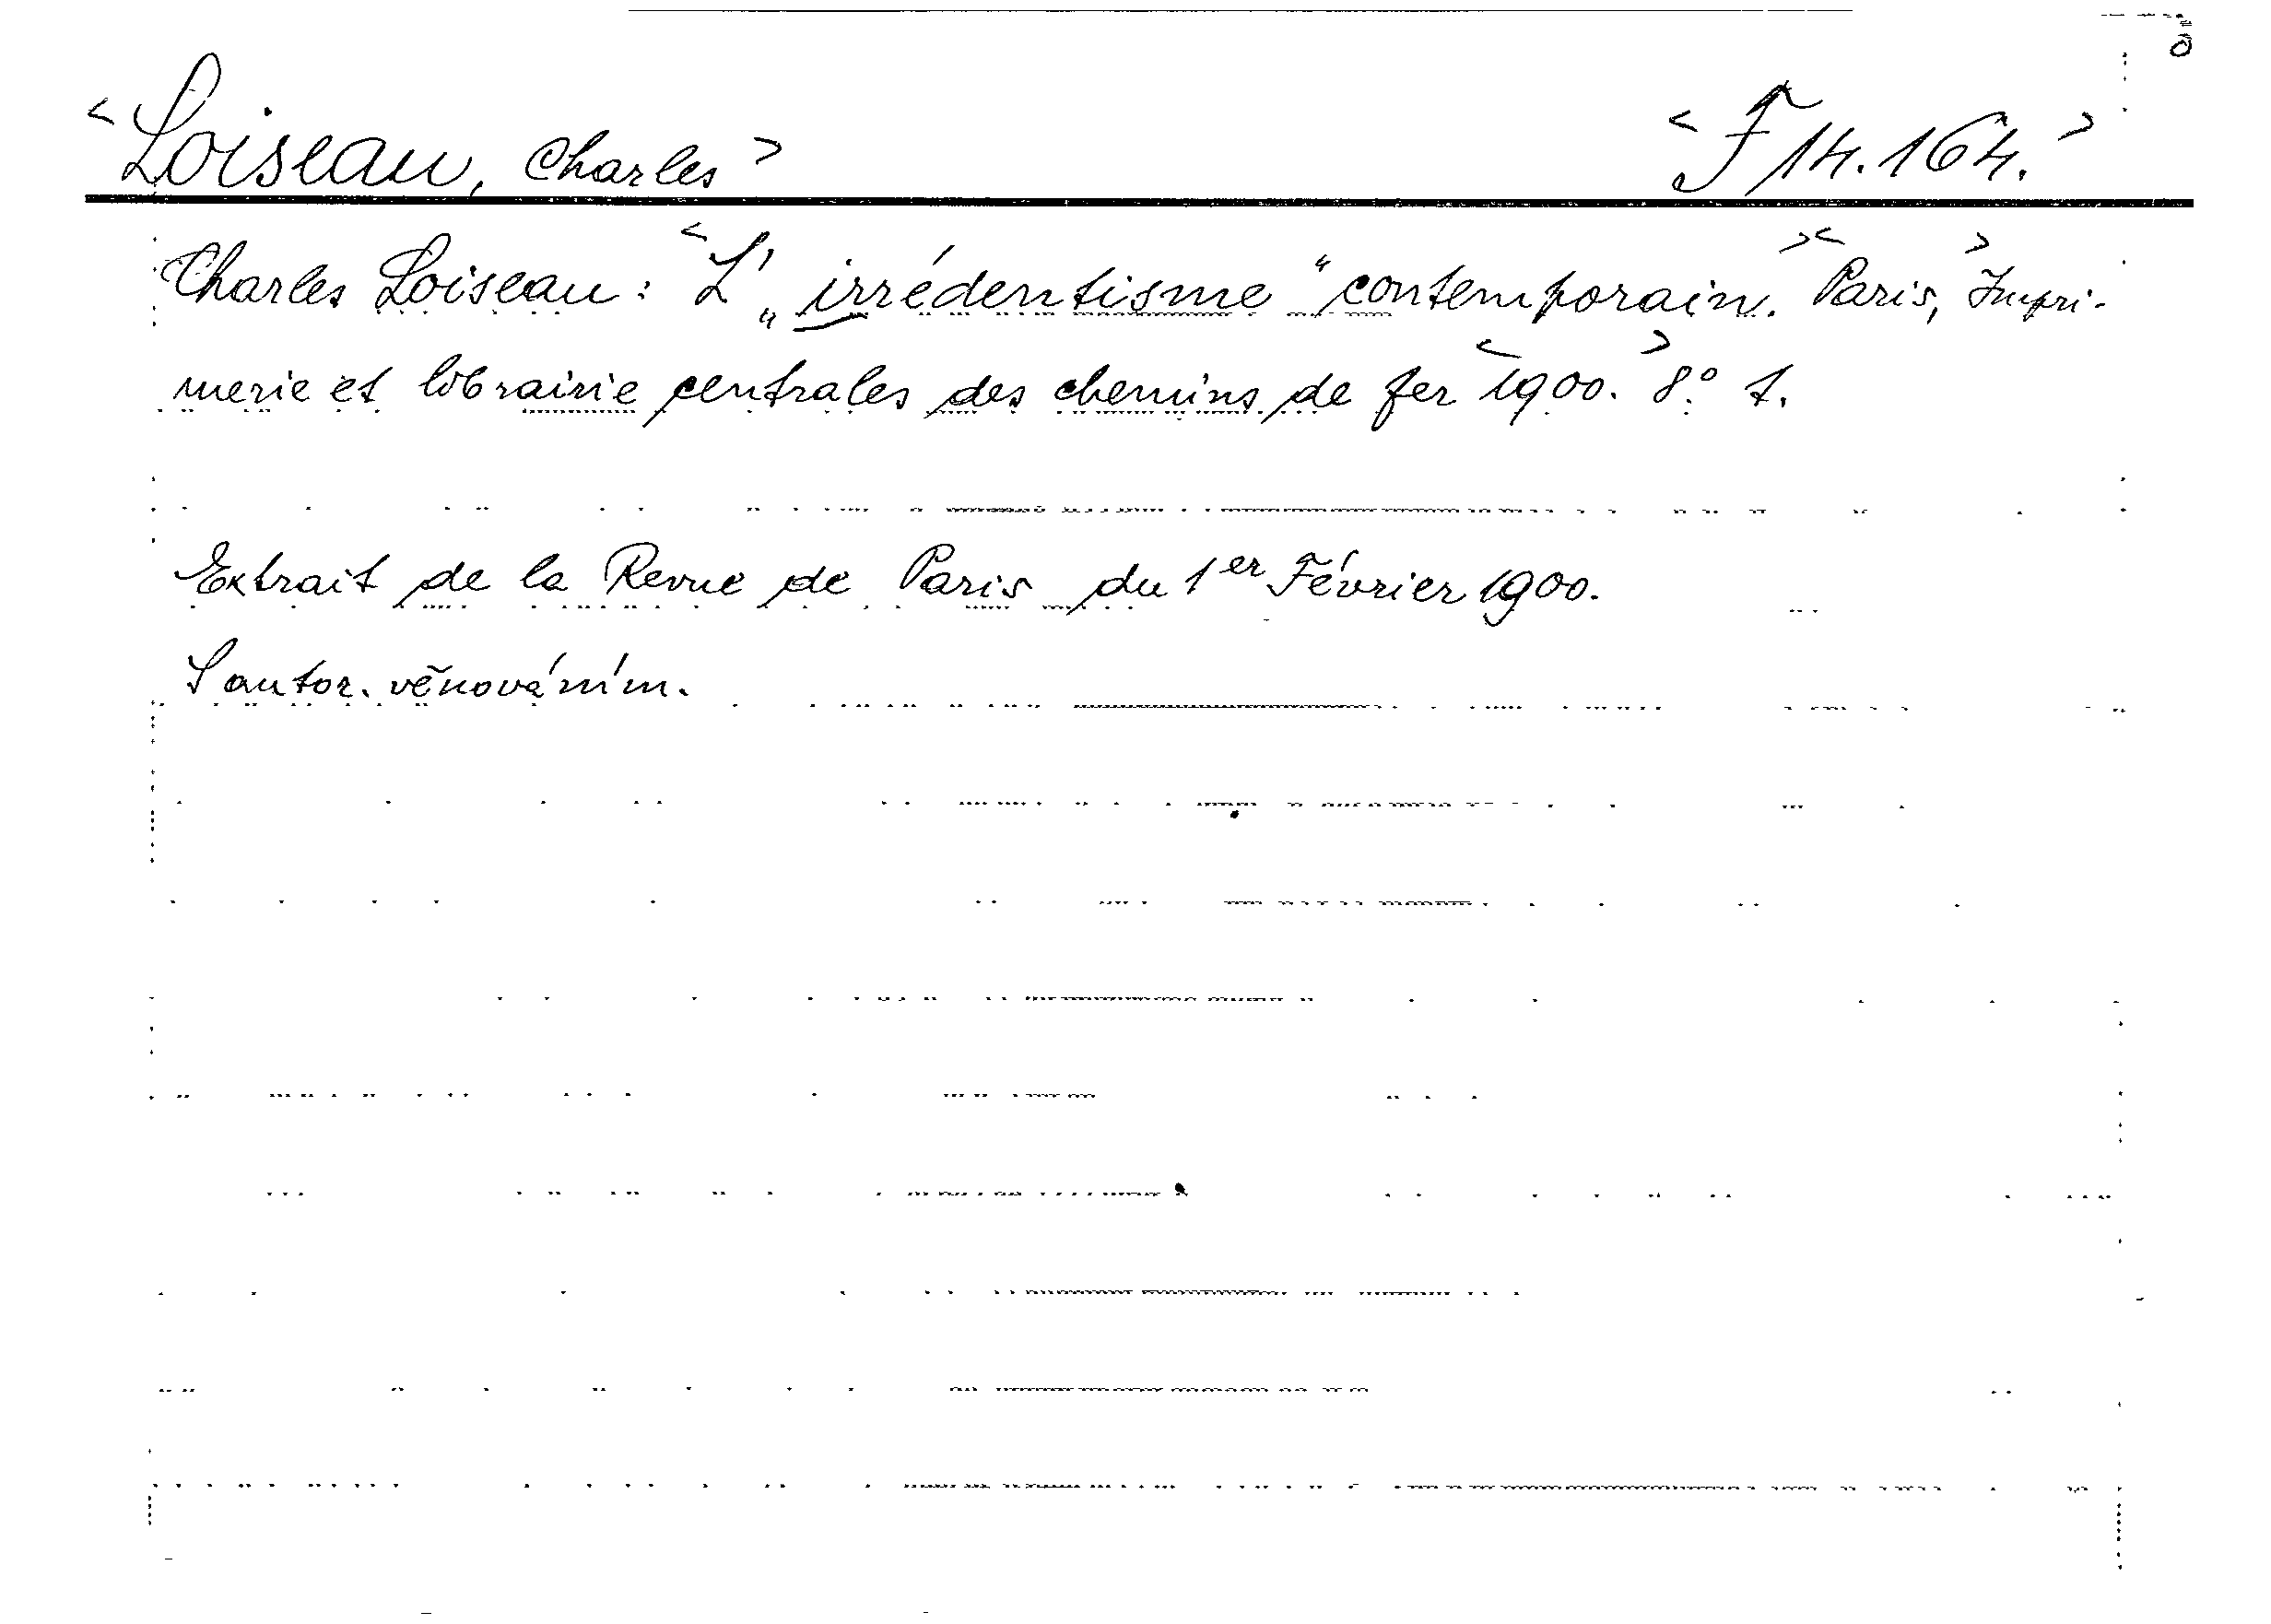 <Loiseau, Charles> <F 14.164.>
Charles Loiseau: <L' „irrédentisme“ contemporain.> <Paris,> Impri-
merie et librairie centrales des chemins de fer <1900.> 8° 1.
Extrait de la Revue de Paris du 1er Février 1900.
S autor. věnováním.